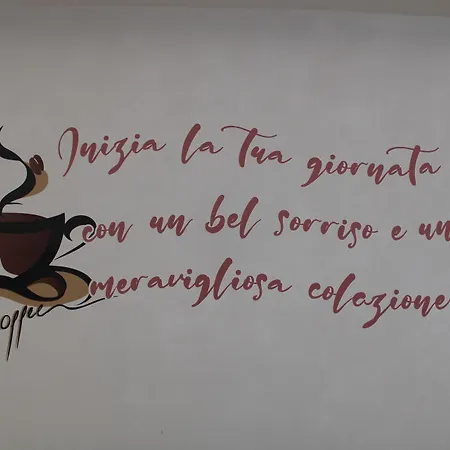 Inizia la Tua giornata
con un bel sorriso e un
meravigliosa colazione